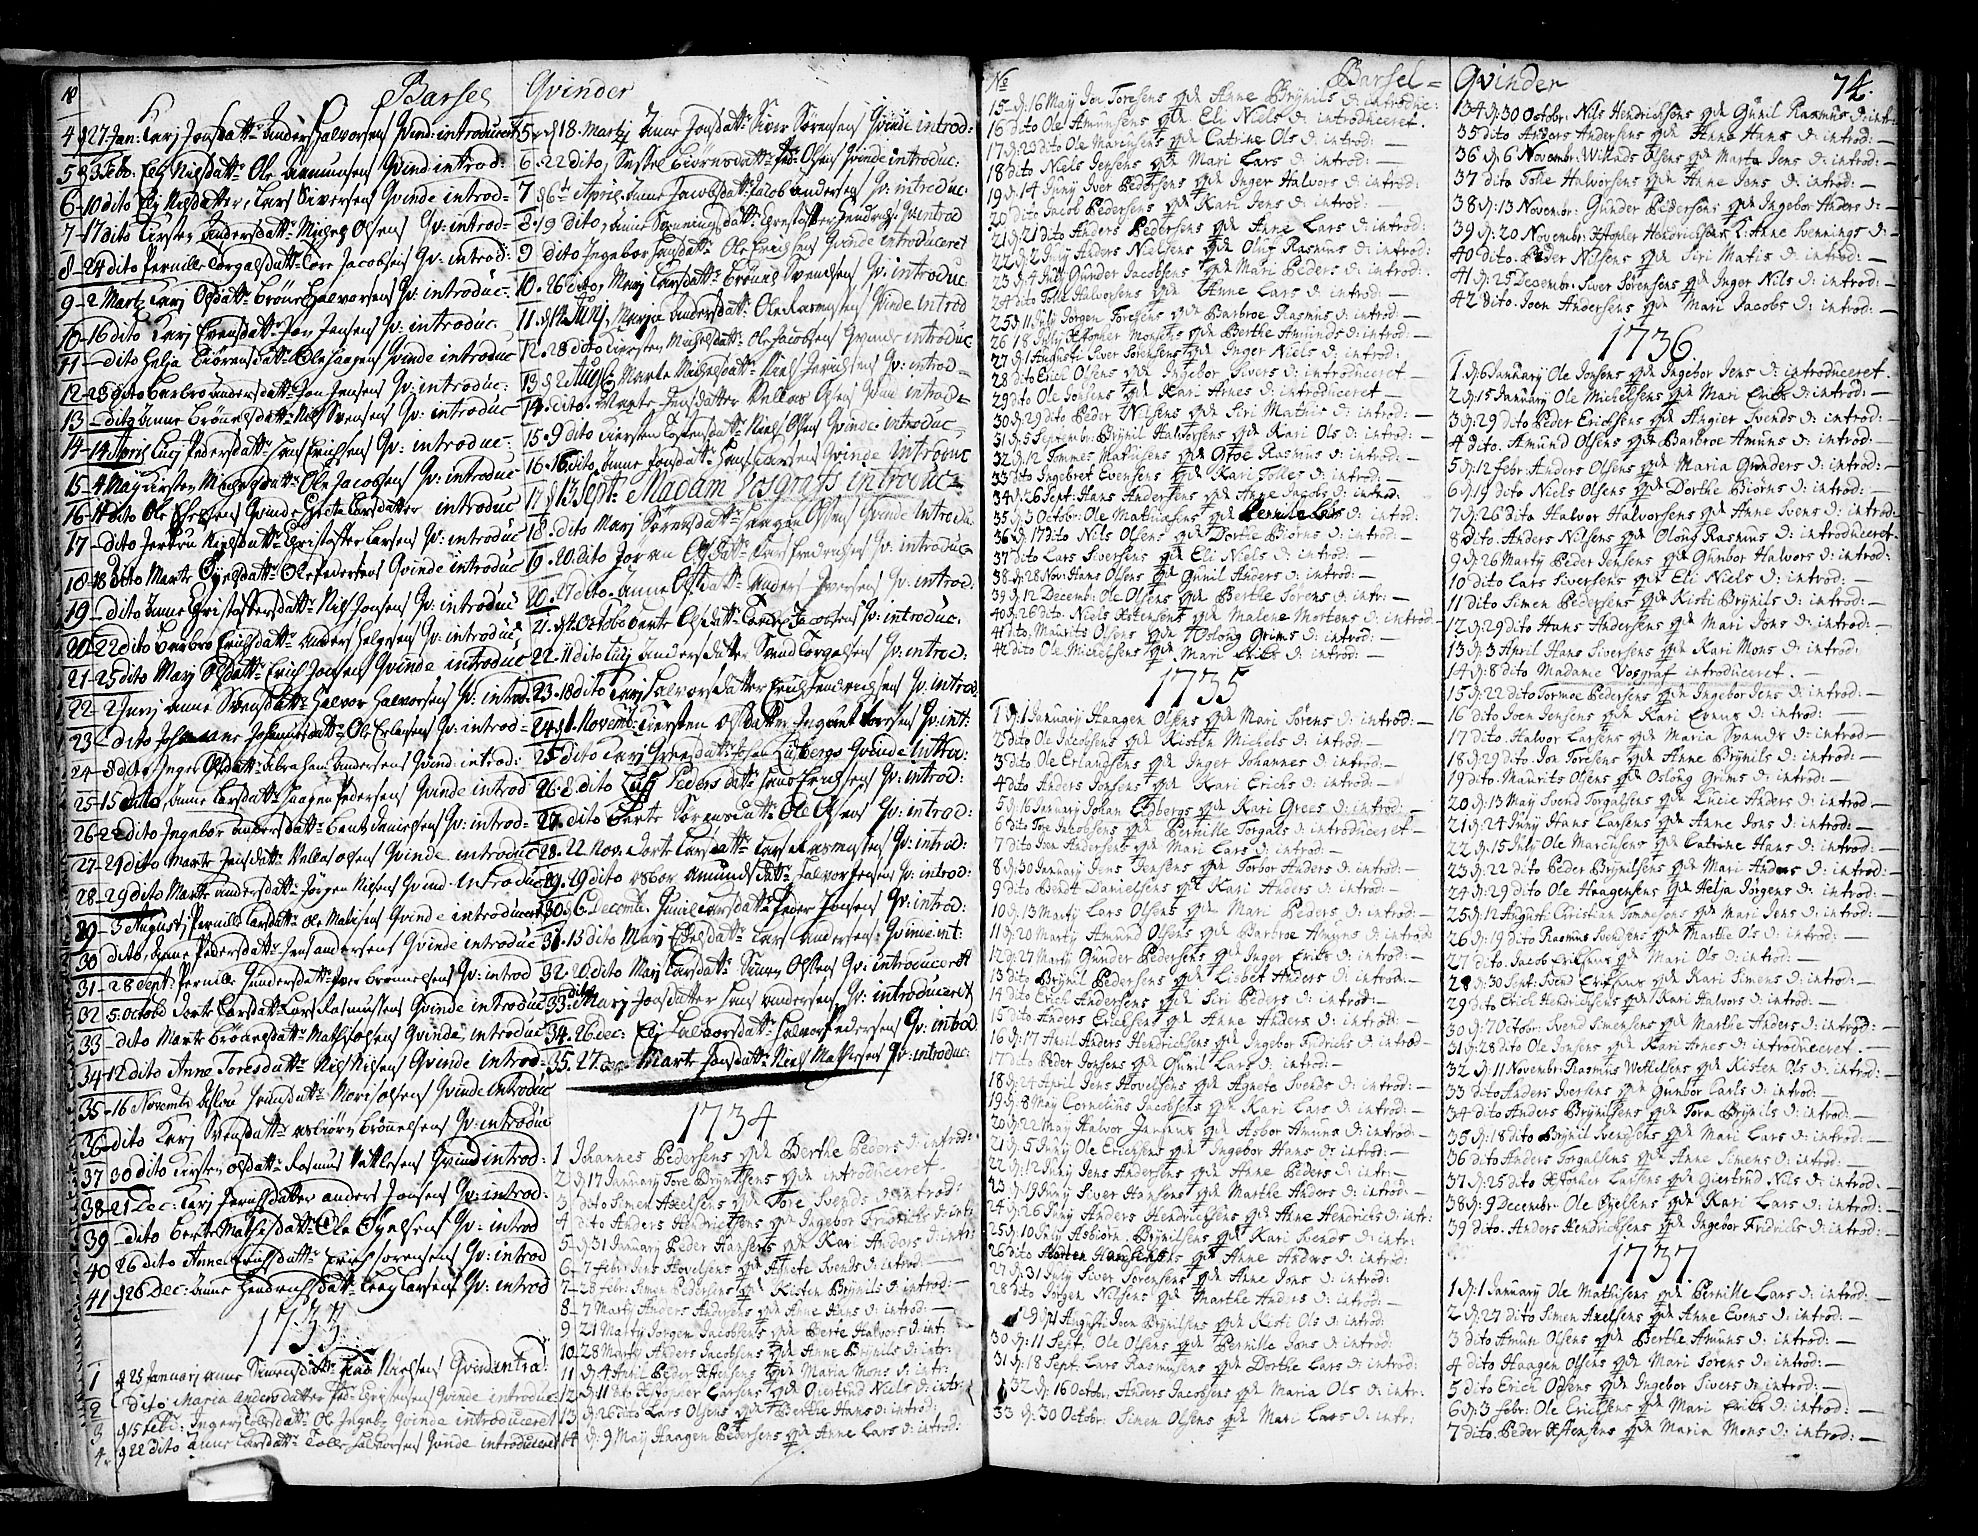 Barsel Qvinder
4 27 Jan: Karj Jonsdatt: Anders Halvorsens Qvind: introduceret
5 3 Febr: Elj Nielsdatt: Ole Amunsens Qvind introd:
6 10 dito Elj Nielsdatter, Lars Siversens Qvinde introd
7 17 dito Kirsten Andersdatt: Michel Olsens Qv: introd
8 24 dito Pernille Torgalsdatt: Tore Jacobsens Qv: introd:
9 2 Martj Karj Olsdatt: Brönel Halvorsens Qv: introduc:
10 16 dito Karj Evensdatt: Jon Jensens Qv: introduc:
11 dito Helja Biörensdatt: Ole Haagens Qvinde introduc
12 23 dito Barbro Andersdatt: Jon Jensens Qv: introduc:
13 dito Anne Brönelsdatt: Niels Svensens Qv: introduc
14 14 Aprill Lucj Pedersdatt: Hans Erichsens Qv: introduc
15 4 Maij Kirsten Michelsdatt: Ole Jacobsens Qv: introduc
16 11 dito Ole Qvinde Grete Larsdatter introduc
17 dito Jertru Nielsdatt: Christoffer Larsens Qv: introduc
18 18 dito Marte Eyelsdatt: Ole Pedersens Qvinde introduc
19 dito Anne Christoffersdatt: Niels Jonsens Qv: introduc
20 22 dito Barbro Erichsdatt: Anders Helgesens Qv: introduc
21 25 dito Marj Olsdatt: Erich Jonsens Qvinde introduc
22 2 Junj Anne Svensdatt: Halvor Halvorsens Qv: introd
23 dito Johanne Johannesdatt: Ole Erlansens Qv: introd
24 8 dito Inger Olsdatt: Abraham Andersens Qvind: introd:
25 15 dito, Anne Larsdatt: Haagen Pedersens Qvinde introd
26 22 dito Ingebor Andersdatt: Bent Danielsens Qv: introd
27 24 dito Marte Jensdatt: Olsens Qvinde introduc
28 29 dito Marte Andersdatt: Jörgen Nielsens Qvind introduc
29 3 Augustj Pernille Larsdatt: Ole Matisens Qvinde introduceret
30 dito, Anne Pedersdatt: Jens Andersens Qvinde introduc
31 28 Sept: Pernille Gundersdatt: Iver Brönnelsens Qv: introd
32 5 Octobr Dorte Larsdatt: Lars Rasmussens Qvinde introduc
33 dito Marte Brönelsdatt: Mathis Olsens Qvinde introduc
34 12 dito Anne Toresdatt: Niels Nilsens Qvinde introd:
35 16 Novembr Oslou datt: Moris Olsens Qvinde introduc
36 dito Karj Svensdatt: Asbiörn Brönnelsens Qv: introduc
37 30 dito Kirsten Olsdatt: Rasmus Vetlesens Qvind introd:
38 21 Dec: Karj datter Anders Jonsens Qv: introd:
39 dito Berte Mathisdatt: Ole Eyelsens Qv: introd
40 26 dito Anne Erichsdatt: Erich Sorensens Qv: introd
41 26 Dec: Anne Hendrichsdatt: Larsens Qv: introd
1733
1 25 Januarj Anne Simensdatt: Nielsens Qvind intro:
2 dito Maria Andersdatter Ped: Christensens Qvinde introduc
3 15 Febr: Ingerj Larsdatt: Ol Ingebr: Qvinde introduceret
4 22 dito Anne Larsdatt: Tolle Halvorsens Qvinde introduceret
5 18 Martj Anne Jonsdatt: Siver Sörensens Qvinde introd:
6 22 dito, Biörnsdatt: Olsens Qvinde introduc:
7 6 April: Anne Jacobsdatt: Jacob Andersens Qv: introduc:
8 19 dito, Anne Svenningsdatt: Christoffer Hendrichs: Qv: introd
9 dito Ingebor Jensdatt: Ole Erichsens Qvinde introduceret
10 26 dito, Marj Larsdatt: Brönel Svendsens Qv: introduc
11 14 Junj, Marja Andersdatt: Ole Rasmusens Qvinde introd
12 28 dito Kiersten Michelsdatt: Ole Jacobsens Qvinde introduc
13 2 Aug: Marte Michelsdatt: Niels Qv: introd
14 dito. Marte Jensdatter Olsens Qvind introd
15 9 dito Kiersten datt: Niels Olsens Qvinde introduc
16 16 dito Anne Jonsdatt: Hans Larsens Qvinde introduc
17 13 Sept: Madam Vosgrafs introduc:
18 dito Marj Sörensdatt: Haagen Olsens Qvinde introdu
19 20 dito Joran Olsdatt: Lars Fredrichsens Qv: introduc
20 27 dito Anne Olsdatt: Anders Iversens Qv: introd
21 4 Octob Berte Olsdatt: Tore Jacobsens Qv: introduc.
22 11 dito Lucj Andersdatter Svend Torgalsens Qv: introd:
23 18 dito Karj Halvorsdatter Erich Hendrichsens Qv: introd:
24 1 Novemb: Kiersten Olsdatter Ingvert Qv: int:
25 dito Karj datt: Johan Edbergs Qvinde introd:
26 8 dito Lucj Pedersdatt: Hans Erichsens Qv: introd:
27 dito Berte Sörensdatt: Ole Olsens Qv: introd:
28 22 Nov. Dorte Larsdatt: Lars Rasmussens Qv: introd:
29 29 dito Asbor Amundsdatt: Halvor Jensens Qv: introd:
30 6 Decemb: Gunil Larsdatt: Peder Jonsens Qv: introd:
31 13 dito Marj Eyelsdatt: Lars Andersens Qvinde int:
32 20 dito Marj Larsdatt: Simen Olsens Qv: introduceret
33 dito Marj Jonsdatter Hans Andersens Qv: introduceret
34 26 Dec: Elj Halvorsdatt: Halvor Pedersens Qv: introd
35 27 Dec: Marte Jonsdatt: Niels Mathisens Qv: introduc:
1734
1 Johannes Pedersens qde Berthe Peders d: introd:
2 d: 17 January Tore Brynilsens qde introduceret
3 dito Simen Axelsens qde Tore Svends d: introd:
4 dito Anders Hendrichsens qde Ingebor Fridrichs d: intr:
5 d: 31 January Peder Hansens qde Kari Anders d: intr:
6 7 Febr: Jens Hovelsens qde Agnete Svends d: introd:
7 28 Febr: Simen Pedersens qde Kisten Brynils d: introd:
8 7 Marty Anders Andersens qde Anne Hans d: introd:
9 21 Marty Jorgen Jacobsens qde Berte Halvors d: int:
10 28 Marty Anders Jacobsens qde Anne Brynils d: intr:
11 d: 4 Aprill Peder Xstensens qde Maria Mons d: intr:
12 d: 11 dito Xstopher Larsens qde Giertrud Niels d: intr:
13 d: 26 dito Lars Olsens qde Berthe Hans d: introd:
14 d: 9 May Haagen Pedersens qde Anne Lars d: introd:
No Barsel= Qvinder 74.
15 d: 16 May Jon Toresens qde Anne Brynils d: introduc:
16 dito Ole Amunsens qde Eli Niels d: introduceret.
17 d: 23 dito Ole Marensens qde Catrine Ols d: introd:
18 dito Niels Jensens qde Mari Lars d: introd:
19 d: 14 Juny Iver Pedersens qde Inger Halvors d: introd:
20 dito Jacob Pedersens qde Kari Jens d: introd:
21 d: 21 dito Anders Pedersens qde Anne Lars d: introd:
22 d: 2 July Anders Nielsens qde Oluf Rasmus d: introd:
23 d: 4 July Gunder Jacobsens qde Mari Peders d: introd:
24 dito Tolle Halvorsens qde Anne Lars d: introd:
25 d: 11 July Jörgen Toresens qde Barbroe Rasmus d: introd:
26 18 July Xstopher Monsens qde Berthe Amunds d: introd:
27 d: 1 Augusti Siver Sörensens qde Inger Niels d: introd:
28 dito Erich Olsens qde Ingebor Sivers d: introduceret
29 dito Ole Jonsens qde Kari Arnes d: introduceret
30 d: 29 dito Peder Nilsens qde Siri Mathis d: introd:
31 d: 5 Septembr: Brynil Halvorsens qde Kari Ols d: introd:
32 d: 12 Tommes Mathisens qde Rasmus d: introd:
33 dito Ingebret Evensens qde Kari Tolles d: introd:
34 d: 26 Sept: Hans Andersens qde Anne Jacobs d: introd
35 d: 3 Octobr: Ole Mathiasens qde Pernille Lars d: introd:
36 d: 17 dito Nils Olsens qde Dortie Biörns d: introd:
37 dito Lars Siversens qde Eli Niels d: introd:
38 d: 28 Nov: Hans Olsens qde Gunil Anders d: introd:
39 d: 12 Decembr: Ole Olsens qde Berthe Sörens d: intr:
40 d: 26 dito. Niels Xstensens qde Malene Mortens d: introd:
41 dito. Maurits Olsens qde Oslong Grims d: introd:
42 dito Ole Michelsens qde Mari Erichs d: introd:
1735
1 d: 1 January Haagen Olsens qde Mari Sörens d: introd:
2 dito Ole Jacobsens qde Kisten Michels d: introd:
3 dito Ole Erlandsens qde Inger Johannes d: introd:
4 dito Anders Jonsens qde Kari Erichs d: introd:
5 d: 16 January Johan Edbergs qde Kari Grees d: introd:
6 dito Tore Jakobsens qde Pernille Torgals d: introduceret
7 dito Jon Andersens qde Mari Lars d: introd:
8 d: 30 January Jens Jensens qde Torbor Anders d: introd:
9 dito Bendt Danielsens qde Kari Anders d: introd:
10 d: 13 Marty Lars Olsens qde Mari Peders d: introd:
11 d: 20 Marty Amund Olsens qde Barbroe Amuns d: introd:
12 d: 27 Marty Gunder Pedersens qde Inger Erichs d: introd:
13 dito Brynil Pedersens qde Lisbet Anders d: introd:
14 dito Erich Andersens qde Siri Peders d: introd:
15 dito Anders Ericksens qde Anne Anders d: introd:
16 d: 17 April Anders Hendrichsens qde Ingebor Fridrichs d: introd
17 dito Peder Jonsens qde Gunil Lars d: introd:
18 d: 24 April Jens Hovelsens qde Agnete Svends d: introd:
19 d: 8 May Cornelius Jacobsens qde Kari Lars d: introd:
20 d: 22 May Halvor Jensens qde Asbor Amuns d: introd:
21 d: 5 Juny Ole Erichsens qde Ingebor Hans d: introd:
22 d: 12 Juny Jens Andersens qde Anne Peders d: intr:
23 d: 19 Juny Siver Hansens qde Marthe Anders d: introd:
24 d: 26 Juny Anders Hendrichsens qde Anne Hendrichs d: intr:
25 d: 10 July Asbiorn Brynilsens qde Kari Svends d: intr:
26 dito qde Anne Anders d: introd:
27 d: 31 July Siver Sörensens qde Anne Jons d: introd:
28 dito Jörgen Nilsens qde Marthe Anders d: introd:
29 d: 21 Augusti Joen Brynilsens qde Kisti Ols d: introd:
30 d: 11 Sept. Ole Olsens qde Pernille Jons d: introd:
31 d: 18 Sept. Lars Rasmusens qde Dorthe Lars d: introd:
32 d: 16 Octobr: Anders Jacobsens qde Maria Ols d: intr:
33 d: 30 Octobr: Simen Olsens qde Mari Lars d: intr:
34 d: 30 Octobr: Nils Hendrichsens qde Gunil Rasmus d: intr:
35 dito Anders Andersens qde Anne Hans d: introd:
36 d: 6 Novembr: Willads Olsens qde Marta Jens d: introd:
37 dito Tolle Halvorsens qde Anne Jens d: introd:
38 d: 13 Novembr: Gunder Pedersens qde Ingebor Anders d:
39 d: 20 Novembr: Xstopher Hendrichsens K: Anne Svennings d:
40 dito. Peder Nilsens qde Siri Matis d: introd:
41 d: 25 Decembr: Siver Sörensens qde Inger Nils d: introd:
42 dito. Joen Andersens qde Mari Jacobs d: introd:
1736
1 d: 6 January Ole Jonsens qde Ingebor Jens d: introduceret.
2 d: 15 January Ole Michelsens qde Mari Erichs d: introd:
3 d: 29 dito Peder Erichsens qde Angier Svends d: introd:
4 dito. Amund Olsens qde Barbroe Amuns d: introd:
5 d: 12 Febr: Anders Olsens qde Maria Gunders d: introd:
6 d: 19 dito Niels Olsens qde Dorthe Biörns d: introd:
7 d: 26 dito Halvor Halvorsens qde Anne Svens d: introd:
8 dito Anders Nilsens qde Olöug Rasmus d: introduceret.
9 d: 26 Marty Peder Jensens qde Gunbor Halvors d: introd:
10 dito Lars Siversens qde Eli Niels d: introd:
11 dito Simen Pedersens qde Kisti Brynils d: introd:
12 d: 29 dito Hans Andersens qde Mari Jons d: introd:
13 d: 3 April Hans Siversens qde Kari Mons d: introd:
14 d: 8 dito Madame Vosgraf introduceret.
15 d: 22 dito Tormoe Pedersens qde Ingebor Jens d: introd:
16 dito Joen Jensens qde Kari Evens d: introd:
17 dito. Halvor Larsens qde Maria Svends d: introd
18 d: 29 dito Jon Toresens qde Anne Brynils d: introd:
19 dito Maurits Olsens qde Oslong Grims d: introd:
20 d: 13 May Svend Torgalsens qde Lucie Anders d: introd:
21 d: 24 Juny Hans Larsens qde Anne Jons d: introd:
22 d: 15 July Ole Marcusens qde Catrine Hans d: introd:
23 d: 22 dito Peder Brynilsens qde Mari Anders d: introd:
24 d: 29 dito Ole Haagensens qde Helja Jorgens d: introd:
25 d: 12 Augusti Christian Tommesens qde Mari Jens d: introd:
26 d: 19 dito Rasmus Svendsens qde Marthe Ols d: introd:
27 dito. Jacob Erichsens qde Mari Ols d: introd:
28 d: 30 Sept: Svend Erichsens qde Kari Simens d: introd:
29 dito Erich Hendrichsens qde Kari Halvors d: introd:
30 d: 7 Octobr: Svend Simensens qde Marthe Anders d: introd:
31 d: 28 dito Ole Jonsens qde Kari Arnes d: introduceret.
32 d: 11 Novembr: Rasmus Wetlesens qde Kisten Ols d: introd:
33 dito Anders Iversens qde Gunbor Carls d: introd:
34 dito Anders Brynilsens qde Tora Brynils d: introd:
35 d: 18 dito Brynil Svendsens qde Mari Lars d: introd:
36 dito Anders Torgalsens qde Anne Simens d: introd:
37 d: 25 dito Xstopher Larsens qde Giertrud Nils d: introd:
38 d: 9 Decembr: Ole Øyelsens qde Kari Lars d: introd:
39 dito. Anders Hendrichsens qde Ingebor Fridrichs d: introd:
1737
1 d: 1 January Ole Mathisens qde Pernille Lars d: introd:
2 d: 27 dito Simen Axelsens qde Anne Evens d: introd:
3 dito Amun Olsens qde Berthe Amuns d: introd:
4 dito Haagen Olsens qde Mari Sörens d: introd:
5 dito Erich Olsens qde Ingebor Sivers d: introd:
6 d: 3 Febr: Ole Erichsens qde Mari Erichs d: introd:
7 dito. Peder Xstensens qde Maria Mons d: introd: